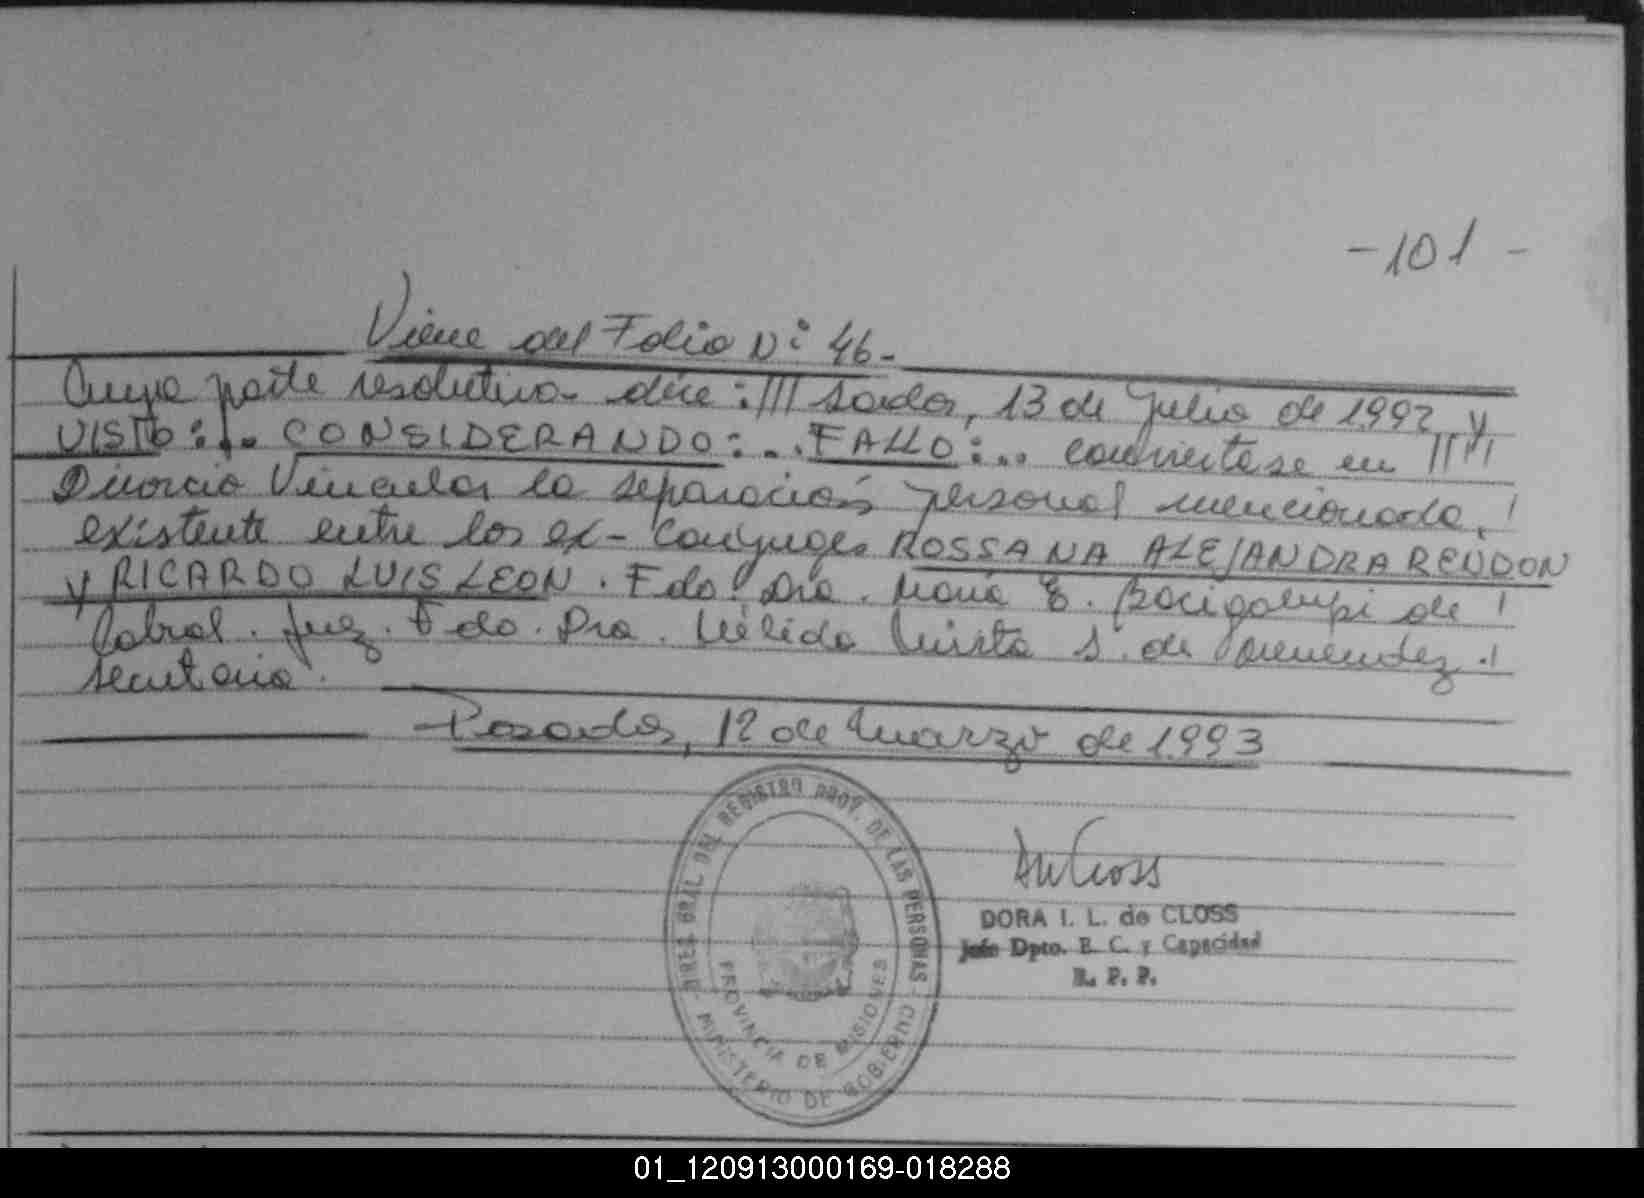 -101-
Viene del Folio N° 46-
Cuya parte resolutiva dice: /// sadas, 13 de Julio de 1.992 y
VISTO:.. CONSIDERANDO:... FALLO:... conviertase en ////
Divorcio Vincular la separación personal mencionada, !
existente entre los ex-conyuges ROSSANA ALEJANDRA RENDON
y RICARDO LUIS LEON. Fdo Dra. María E. Bacigalupi de !
Cabral. Juez. Fdo. Dra. Nélida Mirta S. de Menendez .!
secretaria.
Posadas, 12 de Marzo de 1.993
DIREC. GRAL DEL REGISTRO PROV. DE LAS PERSONAS
PROVINCIA DE MISIONES
MINISTERIO DE GOBIERNO
DORA I. L. de CLOSS
Jefe Dpto. E. C. y Capacidad
R. P. P.
01_120913000169-018288